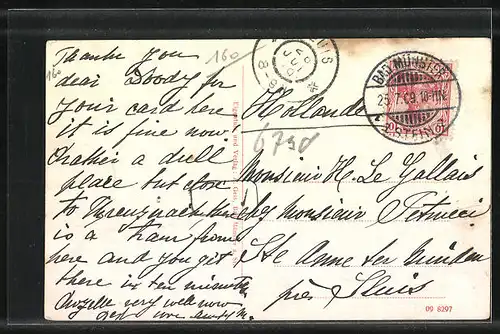 Thanks you
dear Doody for
your card here
it is fine now
rather a dull
place but close
to Kreuznach there
is a tram from
here and you get
there in ten minutes
very well now
160
160
6790
Hollande
Monsieur H. Le Gallais
chez Monsieur Petrucci
Ste Anne ter Muiden
près Sluis
SLUIS
8-9
BAD MÜNSTER
25.7.09. 10-11N.
a. STEIN
09 8297